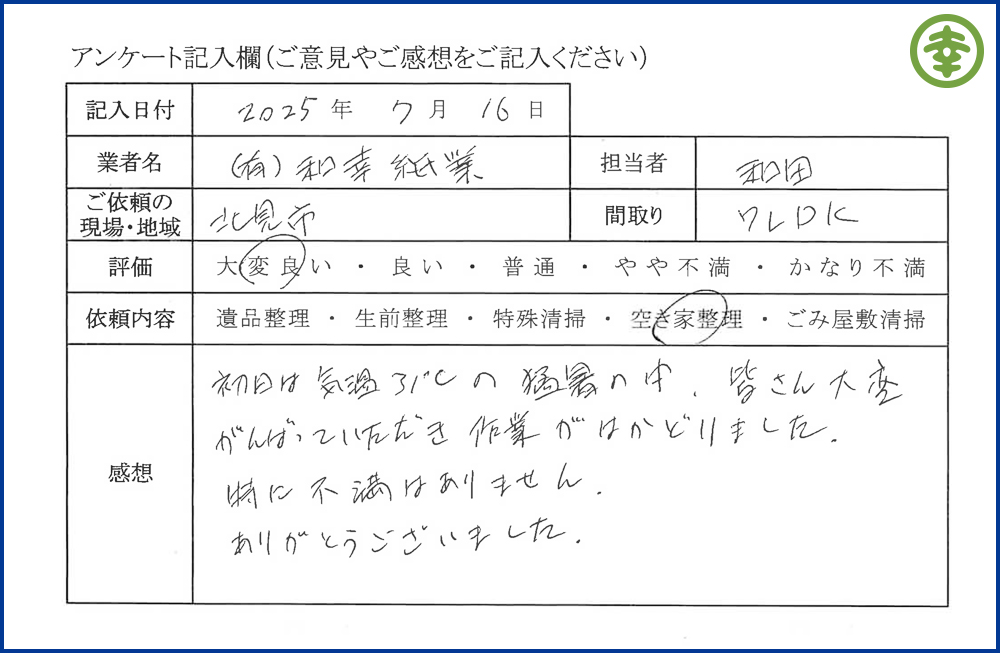 幸
アンケート記入欄(ご意見やご感想をご記入ください)
記入日付 2025年 7月 16日
業者名 (有)和幸紙業 担当者 和田
ご依頼の現場・地域 北見市 間取り 7LDK
評価 大変良い ・ 良い ・ 普通 ・ やや不満 ・ かなり不満
依頼内容 遺品整理 ・ 生前整理 ・ 特殊清掃 ・ 空き家整理 ・ ごみ屋敷清掃
感想
初日は気温31℃の猛暑の中、皆さん大変
がんばっていただき作業がはかどりました。
特に不満はありません。
ありがとうございました。